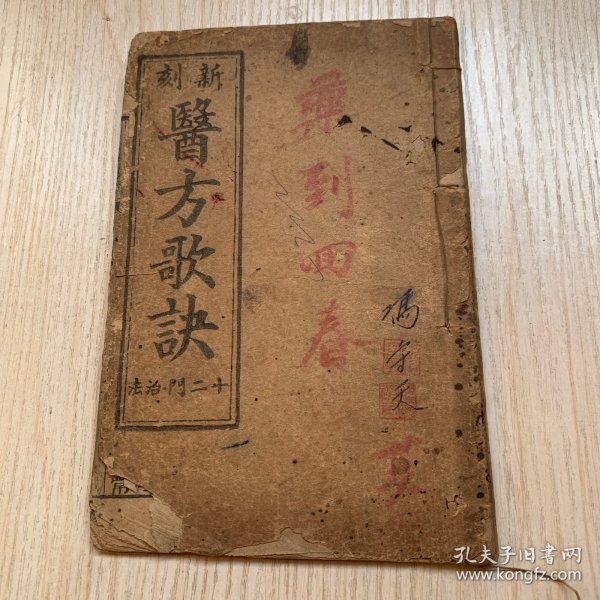 新刻
醫方歌訣
十二門治法
藥到回春
馮
孔夫子旧书网
www.kongfz.com